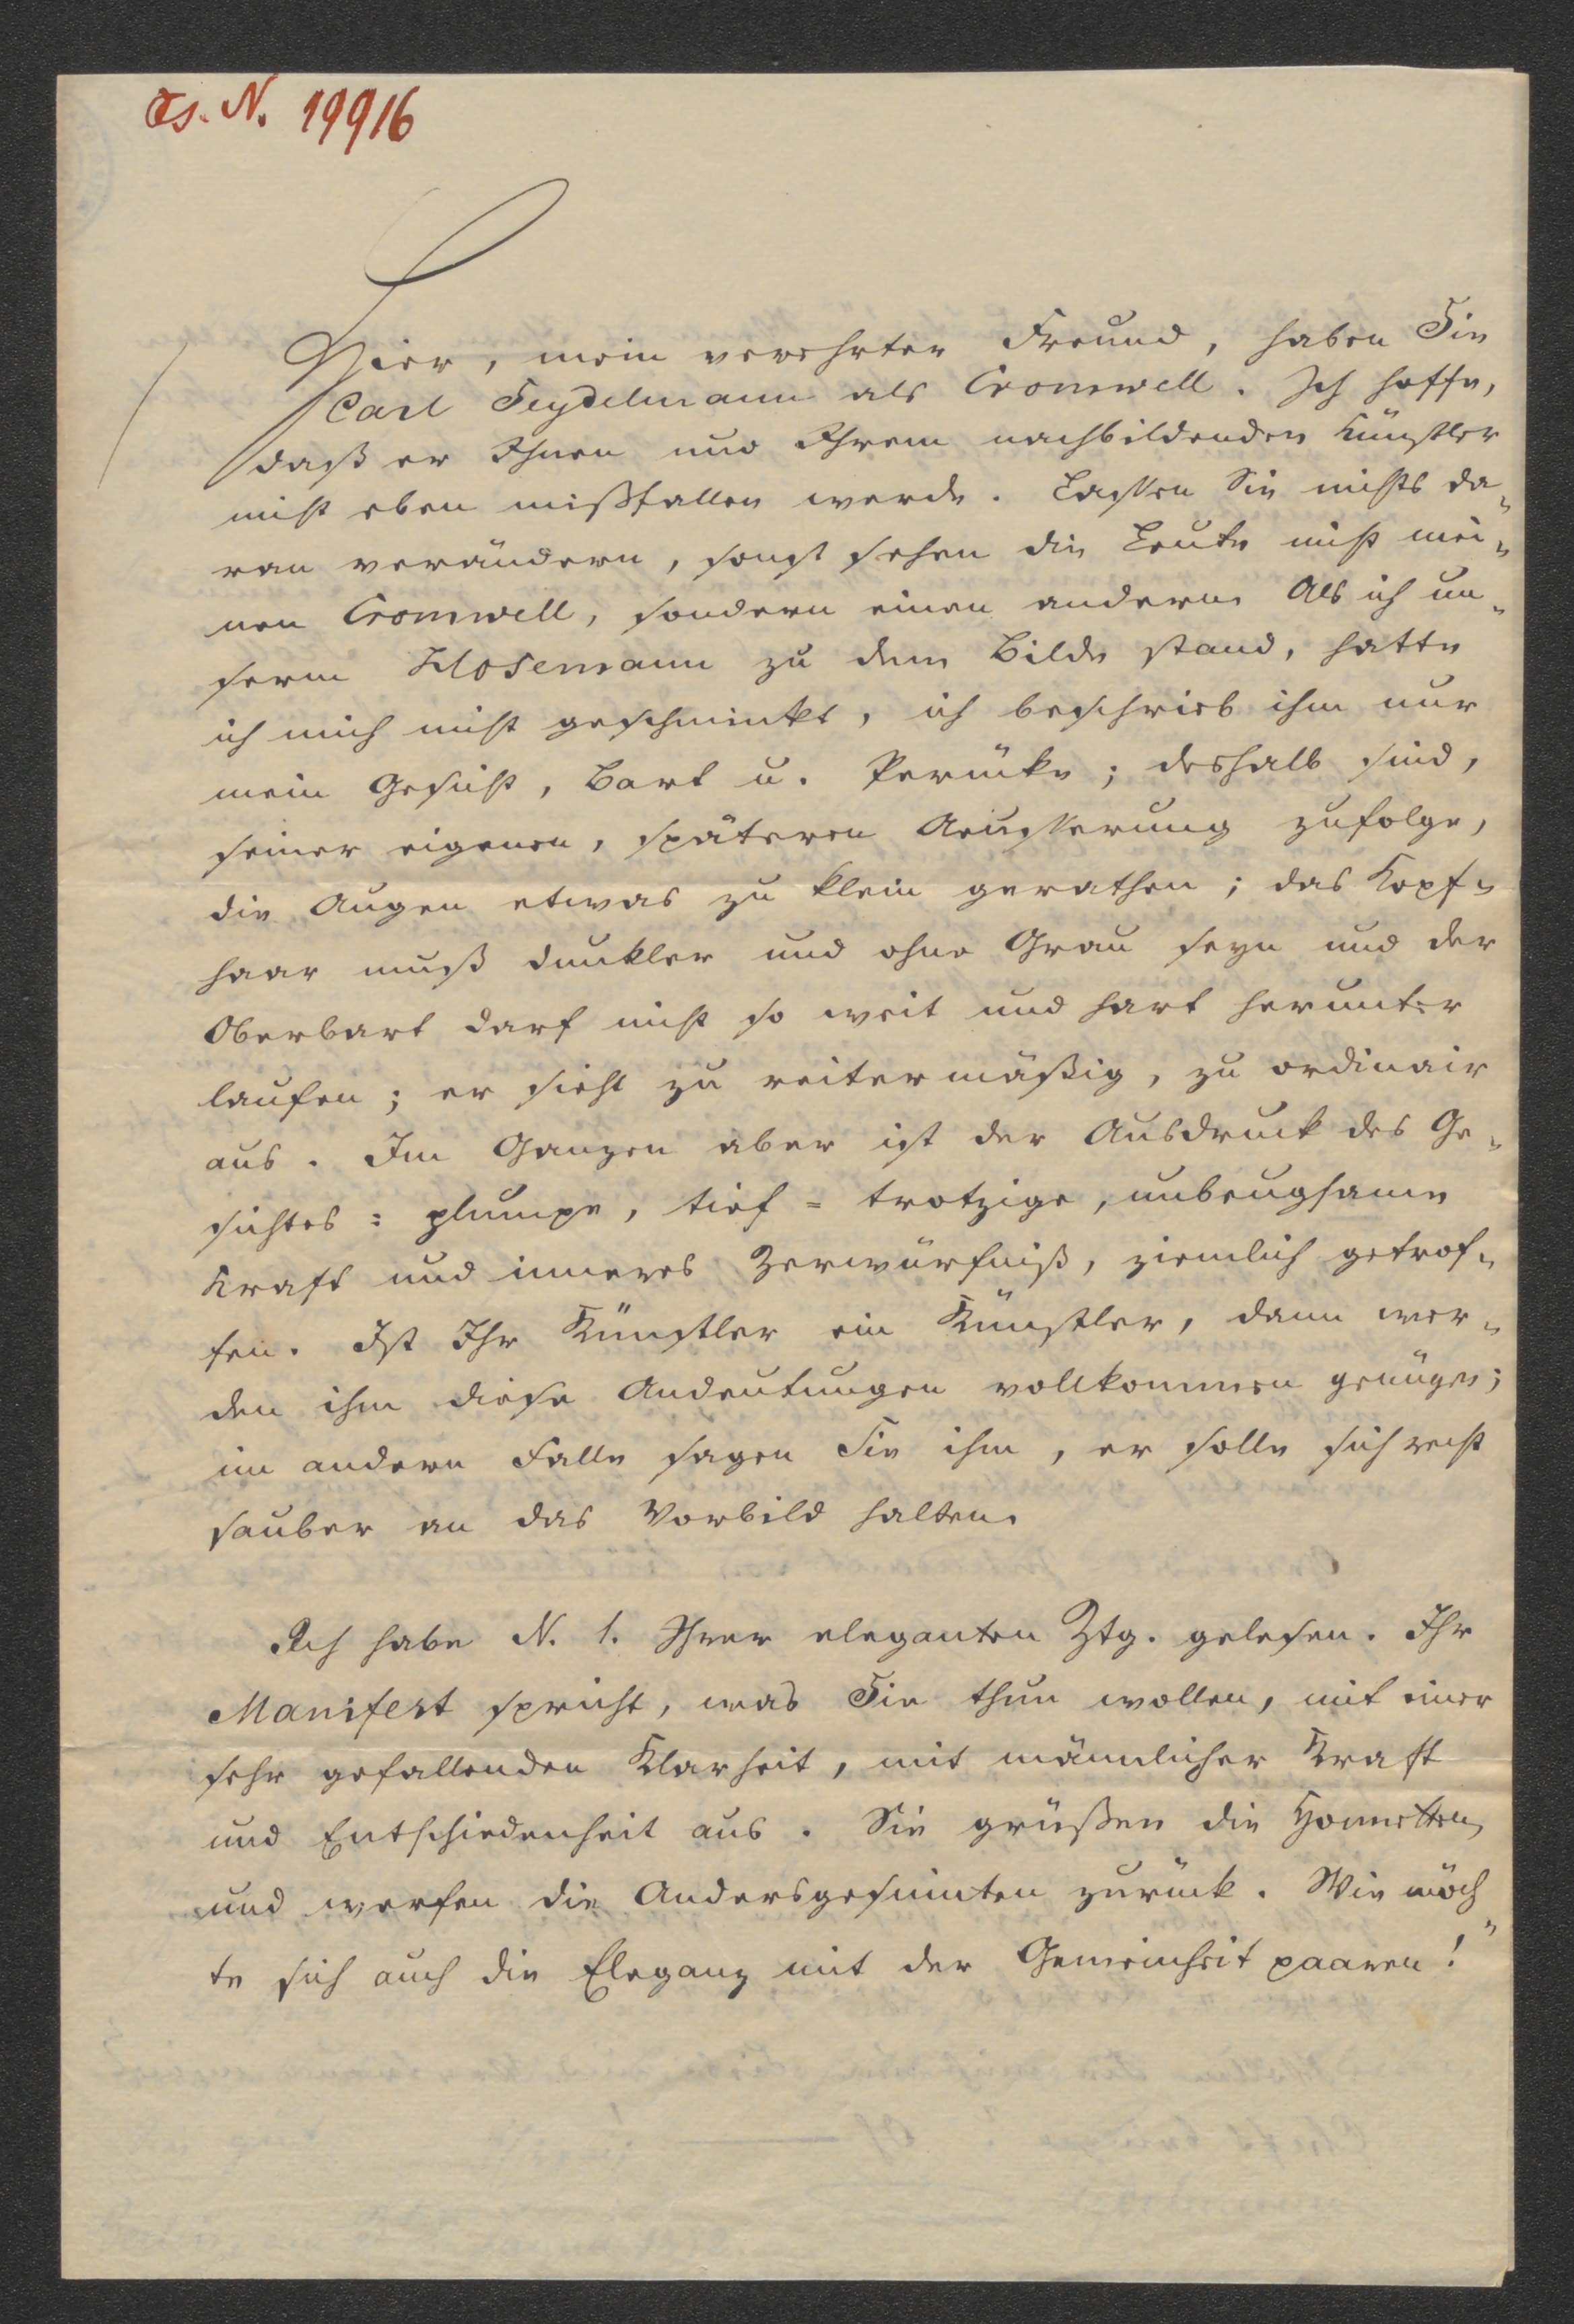 Cs. N. 19916
Hier, mein verehrter Freund, haben Sie
Carl Seydelmann als Cromwell. Ich hoffe,
daß er Ihnen und Ihrem nachbildenden Künstler
nicht eben mißfallen werde. Lassen Sie nichts da-
ran verändern, sonst sehen die Leute nicht mei-
nen Cromwell, sondern einen andern. Als ich un-
serm Hosemann zu dem Bilde stand, hatte
ich mich nicht geschminkt, ich beschrieb ihm nur
mein Gesicht, Bart u. Perücke; deshalb sind,
seiner eigenen, späteren Aeusserung zufolge,
die Augen etwas zu klein gerathen; das Kopf-
haar muß dunkler und ohne Grau seyn und der
Oberbart darf nicht so weit und hart herunter
laufen; er sieht zu reitermäßig, zu ordinair
aus. Im Ganzen aber ist der Ausdruck des Ge-
sichtes: plumpe, tief=trotzige, unbeugsame
Kraft und inneres Zerwürfniß, ziemlich getrof-
fen. Ist Ihr Künstler ein Künstler, dann wer-
den ihm diese Andeutungen vollkommen genügen;
im andern Falle sagen Sie ihm, er solle sich recht
sauber an das Vorbild halten.
Ich habe N. 1. Ihrer eleganten Ztg. gelesen. Ihr
Manifest spricht, was Sie thun wollen, mit einer
sehr gefallenden Klarheit, mit männlicher Kraft
und Entschiedenheit aus. Sie grüßen die Honnetten,
und werfen die Andersgesinnten zurück. Wie möch-
te sich auch die Eleganz mit der Gemeinheit paaren!